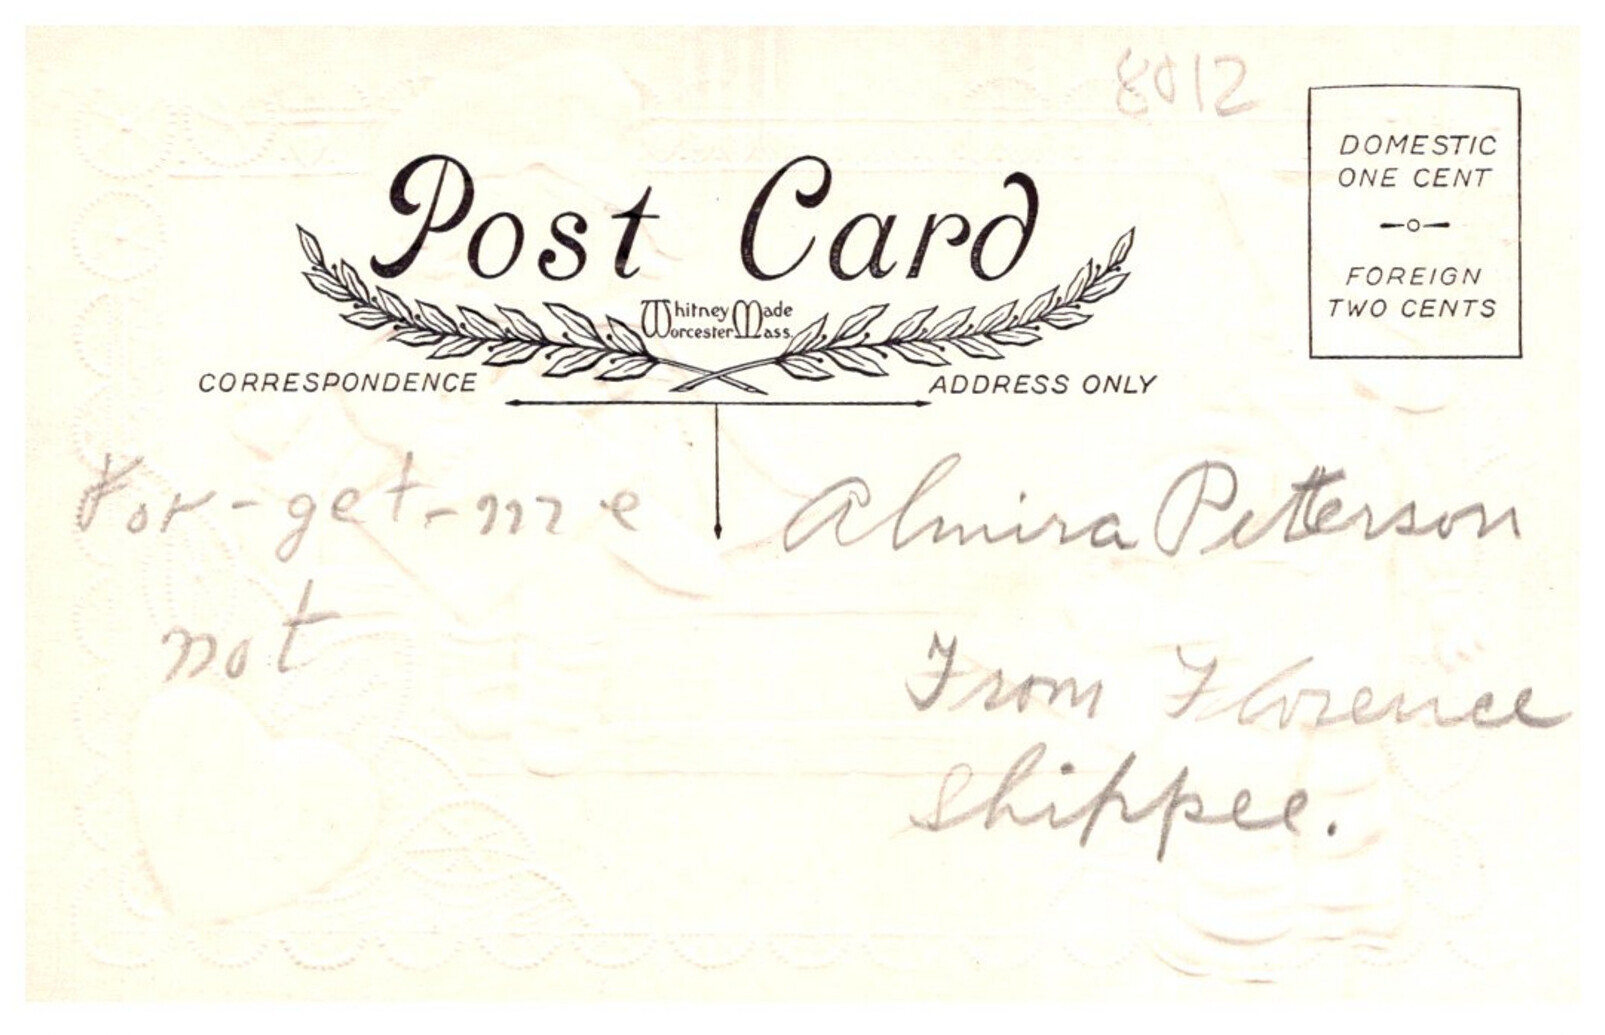 8012
DOMESTIC
ONE CENT
FOREIGN
TWO CENTS
Post Card
Whitney Made
Worcester Mass.
CORRESPONDENCE
ADDRESS ONLY
For-get-me
not
Almira Petterson
From Florence
Shippee.